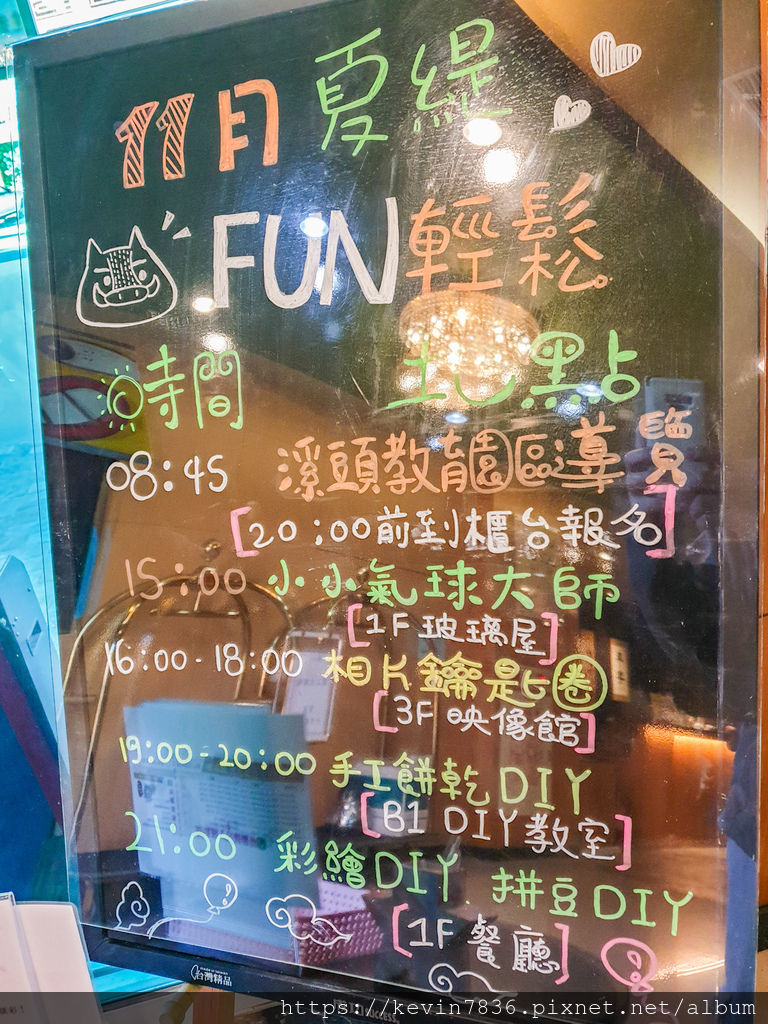 11月夏緹
FUN輕鬆
時間 地點
08:45 溪頭教育園區導覽
[20:00前到櫃台報名]
15:00 小小氣球大師
[1F玻璃屋]
16:00-18:00 相片鑰匙圈
[3F映像館]
19:00-20:00 手工餅乾DIY
[B1 DIY教室]
21:00 彩繪DIY、拼豆DIY
[1F餐廳]
台灣精品
https://kevin7836.pixnet.net/album